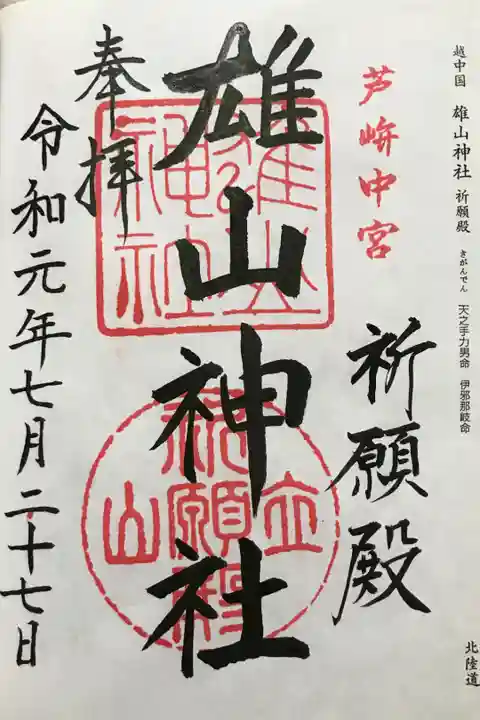 越中国 雄山神社 祈願殿 きがんでん 天之手力男命 伊邪那岐命
北陸道
芦峅中宮
祈願殿
雄山神社
雄山神社
立山
祈願殿
奉拝
令和元年七月二十七日